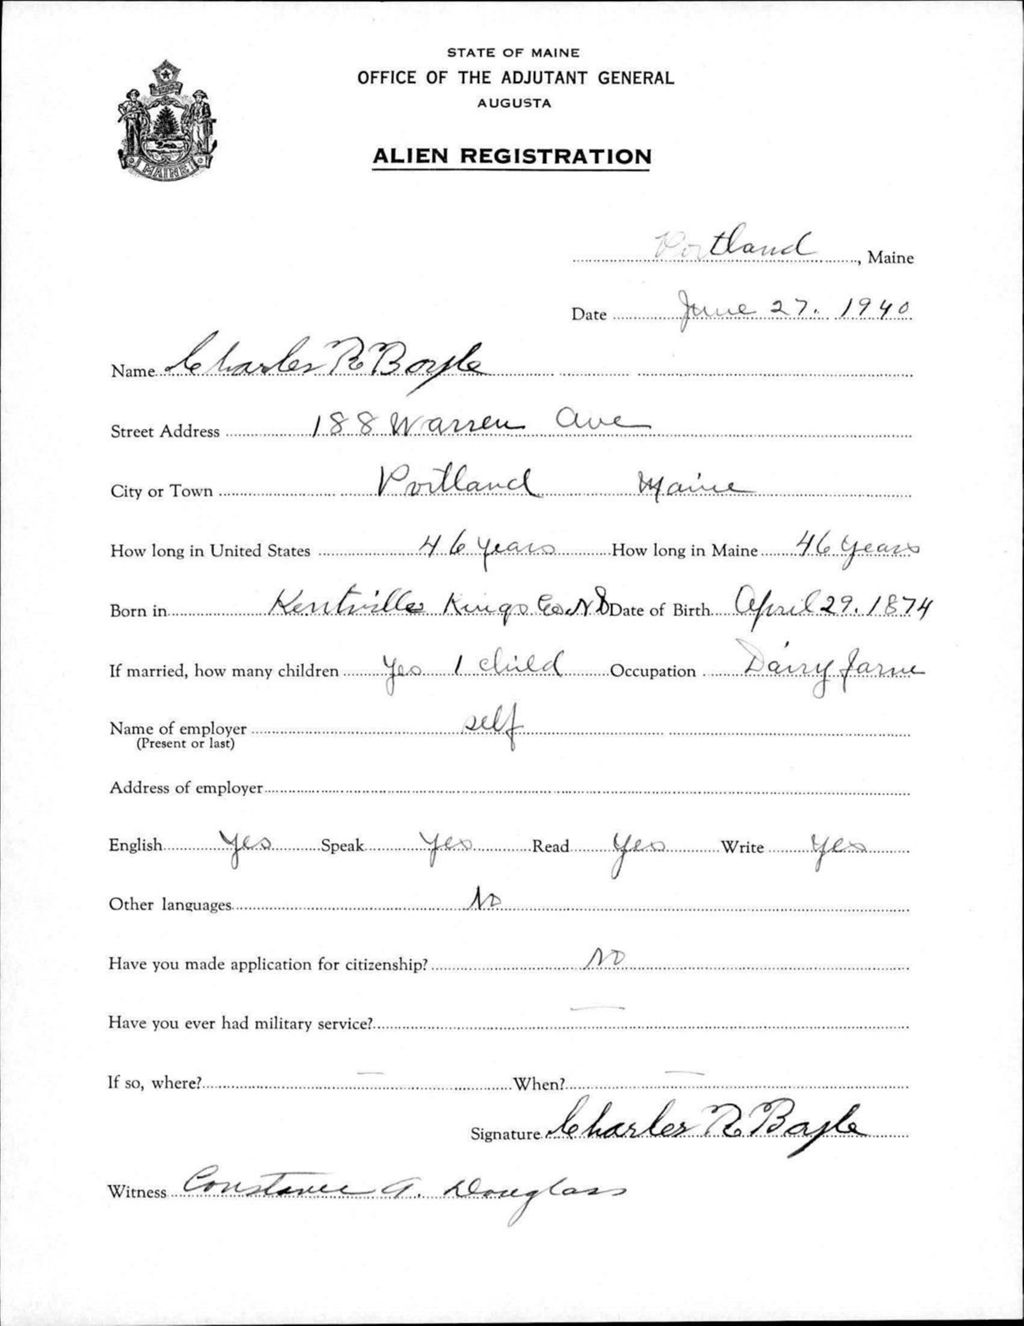 STATE OF MAINE
OFFICE OF THE ADJUTANT GENERAL
AUGUSTA
ALIEN REGISTRATION
MAINE
Portland, Maine
Date June 27. 1940
Name Charles R Boyle
Street Address 188 Warren Ave
City or Town Portland Maine
How long in United States 46 years How long in Maine 46 years
Born in Kentville Kings Co. NS Date of Birth April 29. 1874
If married, how many children yes 1 child Occupation Dairy farm
Name of employer self
(Present or last)
Address of employer
English yes Speak yes Read yes Write yes
Other languages No
Have you made application for citizenship? No
Have you ever had military service? —
If so, where? — When? —
Signature Charles R Boyle
Witness Constance A. Douglass